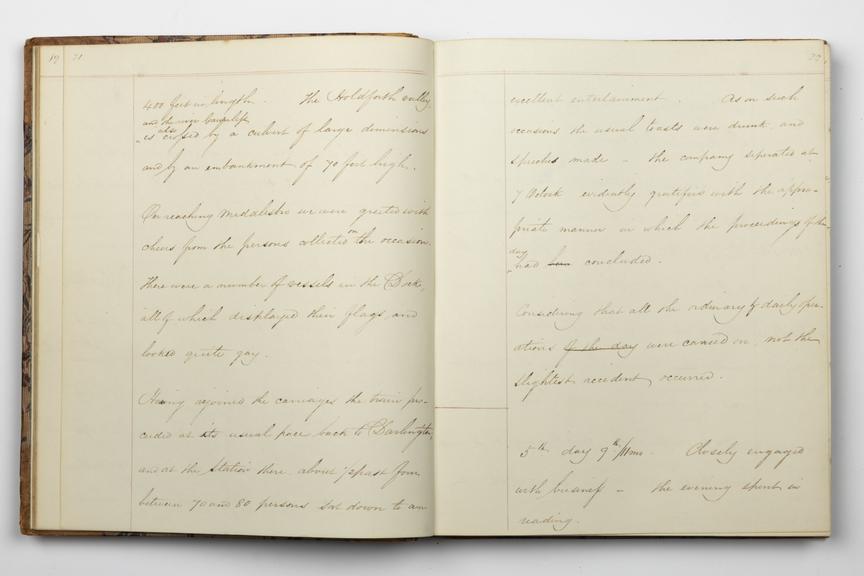 19 21
400 feet in length. The Holdforth valley
and the river Gaunless
is also crossed by a culvert of large dimensions
and by an embankment of 70 feet high.
On reaching Middlesbro we were greeted with
cheers from the persons collected on the occasion.
There were a number of vessels in the Docks,
all of which displayed their flags, and
looked quite gay.
Having rejoined the carriages the train pro-
ceeded at its usual pace back to Darlington
and at the Station there about ½ past four
between 70 and 80 persons sat down to an
excellent entertainment. As on such
occasions the usual toasts were drunk and
speeches made – the company seperated at
7 Oclock evidently gratified with the appro-
priate manner in which the proceedings of the
day
had been concluded.
Considering that all the ordinary & daily oper-
ations of the day were carried on, not the
slightest accident occurred.
5th day 9th/11mo. Closely engaged
with business – the evening spent in
reading.